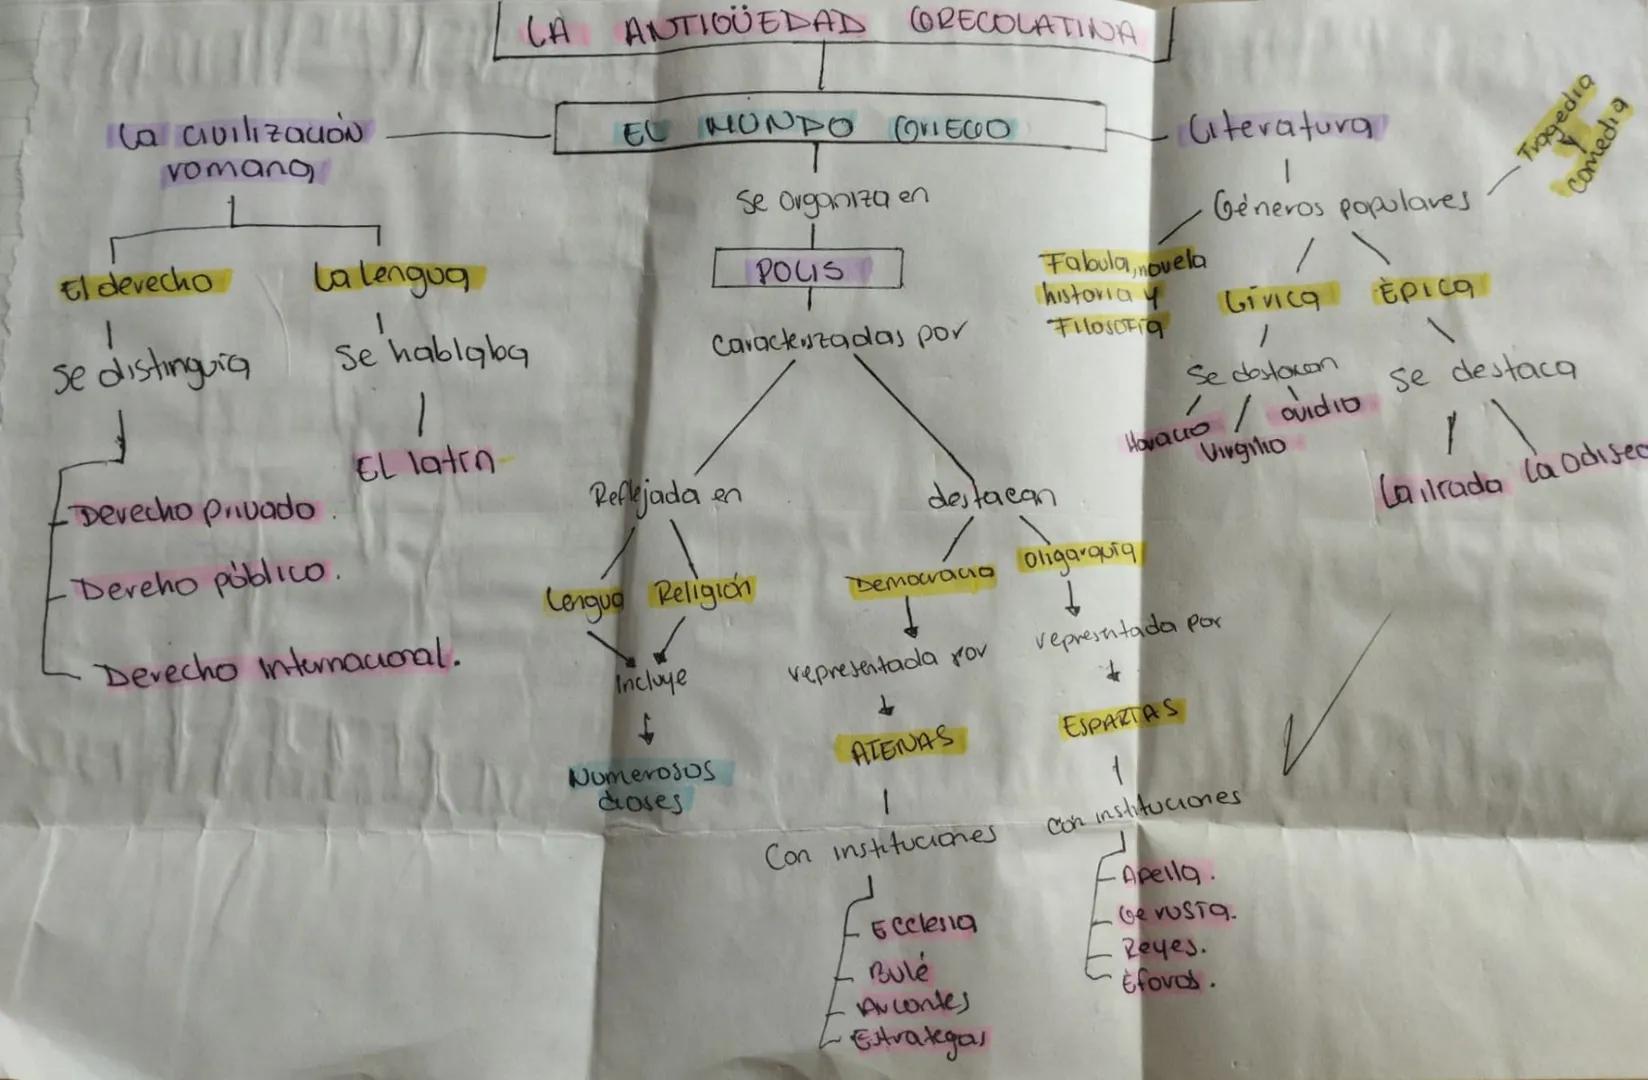 LA ANTIGÜEDAD GRECOLATINA
EL MUNDO GRIEGO
La civilización
romana
El derecho
Se distinguía
Derecho privado.
Dereho público.
Derecho Internacional.
La lengua
Se hablaba
EL latín
Se organiza en
POLIS
Caracterizadas por
Reflejada en
Lengua
Religión
Incluye
Numerosos
dioses
destacan
Democracia
representada por
ATENAS
Con instituciones
Ecclesia
Bulé
Arcontes
Estrategas
Oligarquía
representada por
ESPARTAS
Con instituciones
Apella.
Gerusía.
Reyes.
Éforos.
Literatura
Géneros populares
Tragedia
y
comedia
Fabula, novela
historia y
Filosofía
Lírica
Se destacan
Horacio
Virgilio
Ovidio
Épica
Se destaca
La ilíada
La Odisea